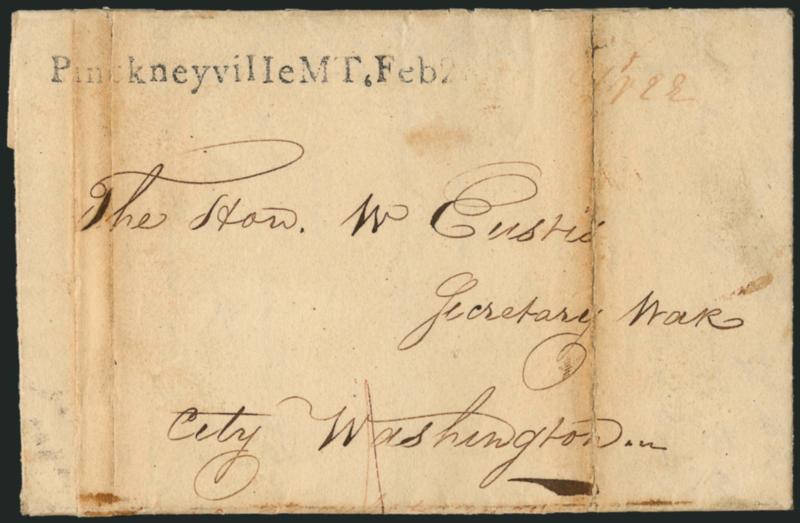 PinckneyvilleMT.Feb2
The Hon. W Eustis
Secretary War
City Washington